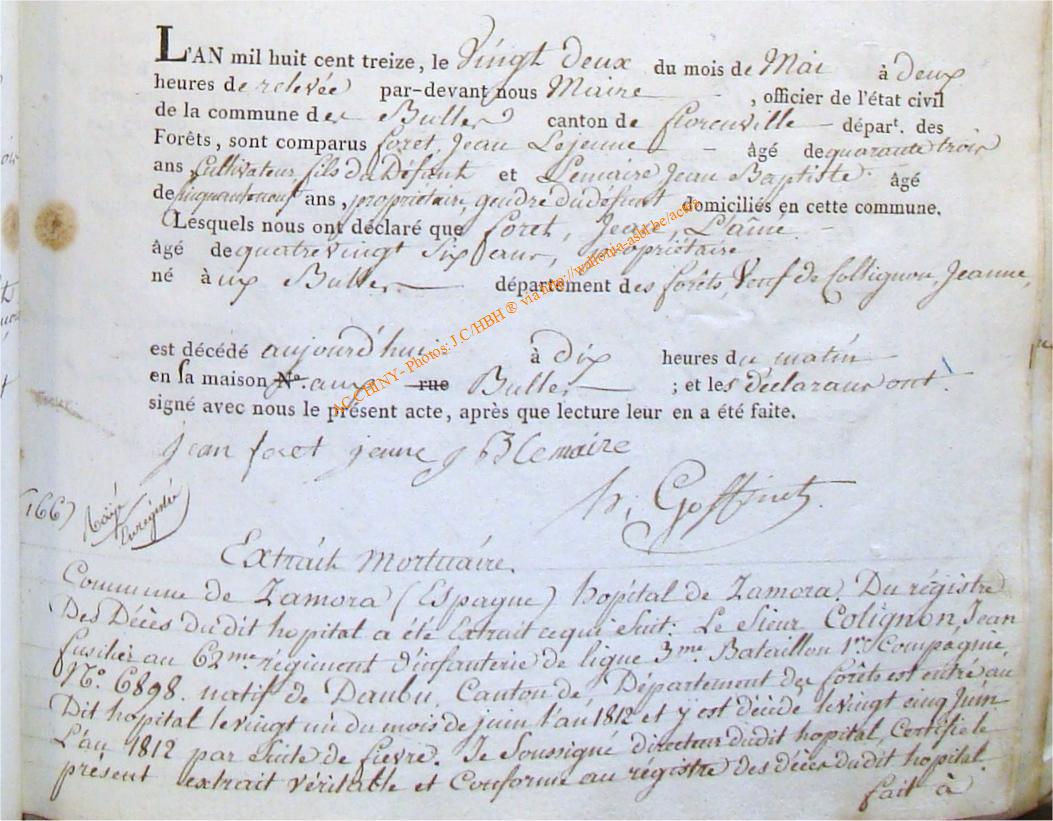 L'AN mil huit cent treize, le Vingt deux du mois de Mai à deux
heures de relevée par-devant nous Maire , officier de l'état civil
de la commune des Bulles canton de florenville départ. des
Forêts, sont comparus foret, Jean Lejeune âgé de quarante trois
ans Cultivateur fils du Défunt et Lemaire Jean Baptiste âgé
de ans, propriétaire, gendre du défunt domiciliés en cette commune.
Lesquels nous ont déclaré que foret, Jean, L'aîné.
âgé de quatre vingt Six ans, propriétaire
né à ux Bulles département des forêts, Veuf de Collignon, Jeanne,
est décédé aujourd'hui à dix heures du matin
en sa maison N°. aux rue Bulles ; et les déclarans ont
signé avec nous le présent acte, après que lecture leur en a été faite.
jean foret jeune J B Lemaire
h. Goffinet
(166)
Extrait Mortuaire.
Commune de Zamora (Espagne) hopital de Zamora. Du régistre
Des Décès dudit hopital a été Extrait ce qui Suit: Le Sieur Colignon, Jean
fusilier au 62me. régiment d'infanterie de ligne 3me. Bataillon 1re. Compagnie,
N°. 6898. natif de Daubu, Canton de, Département des forêts est entré au
Dit hopital le vingt un du mois de juin l'an 1812 et y est décédé le vingt cinq Juin
L'an 1812 par Suite de fievre. Je Soussigné directeur dudit hopital Certifie le
présent extrait véritable et Conforme au régistre des décès dudit hopital.
fait à
AC CHINY - Photos: J.C/HBH ® via http://wallonia-asbl.be/actes